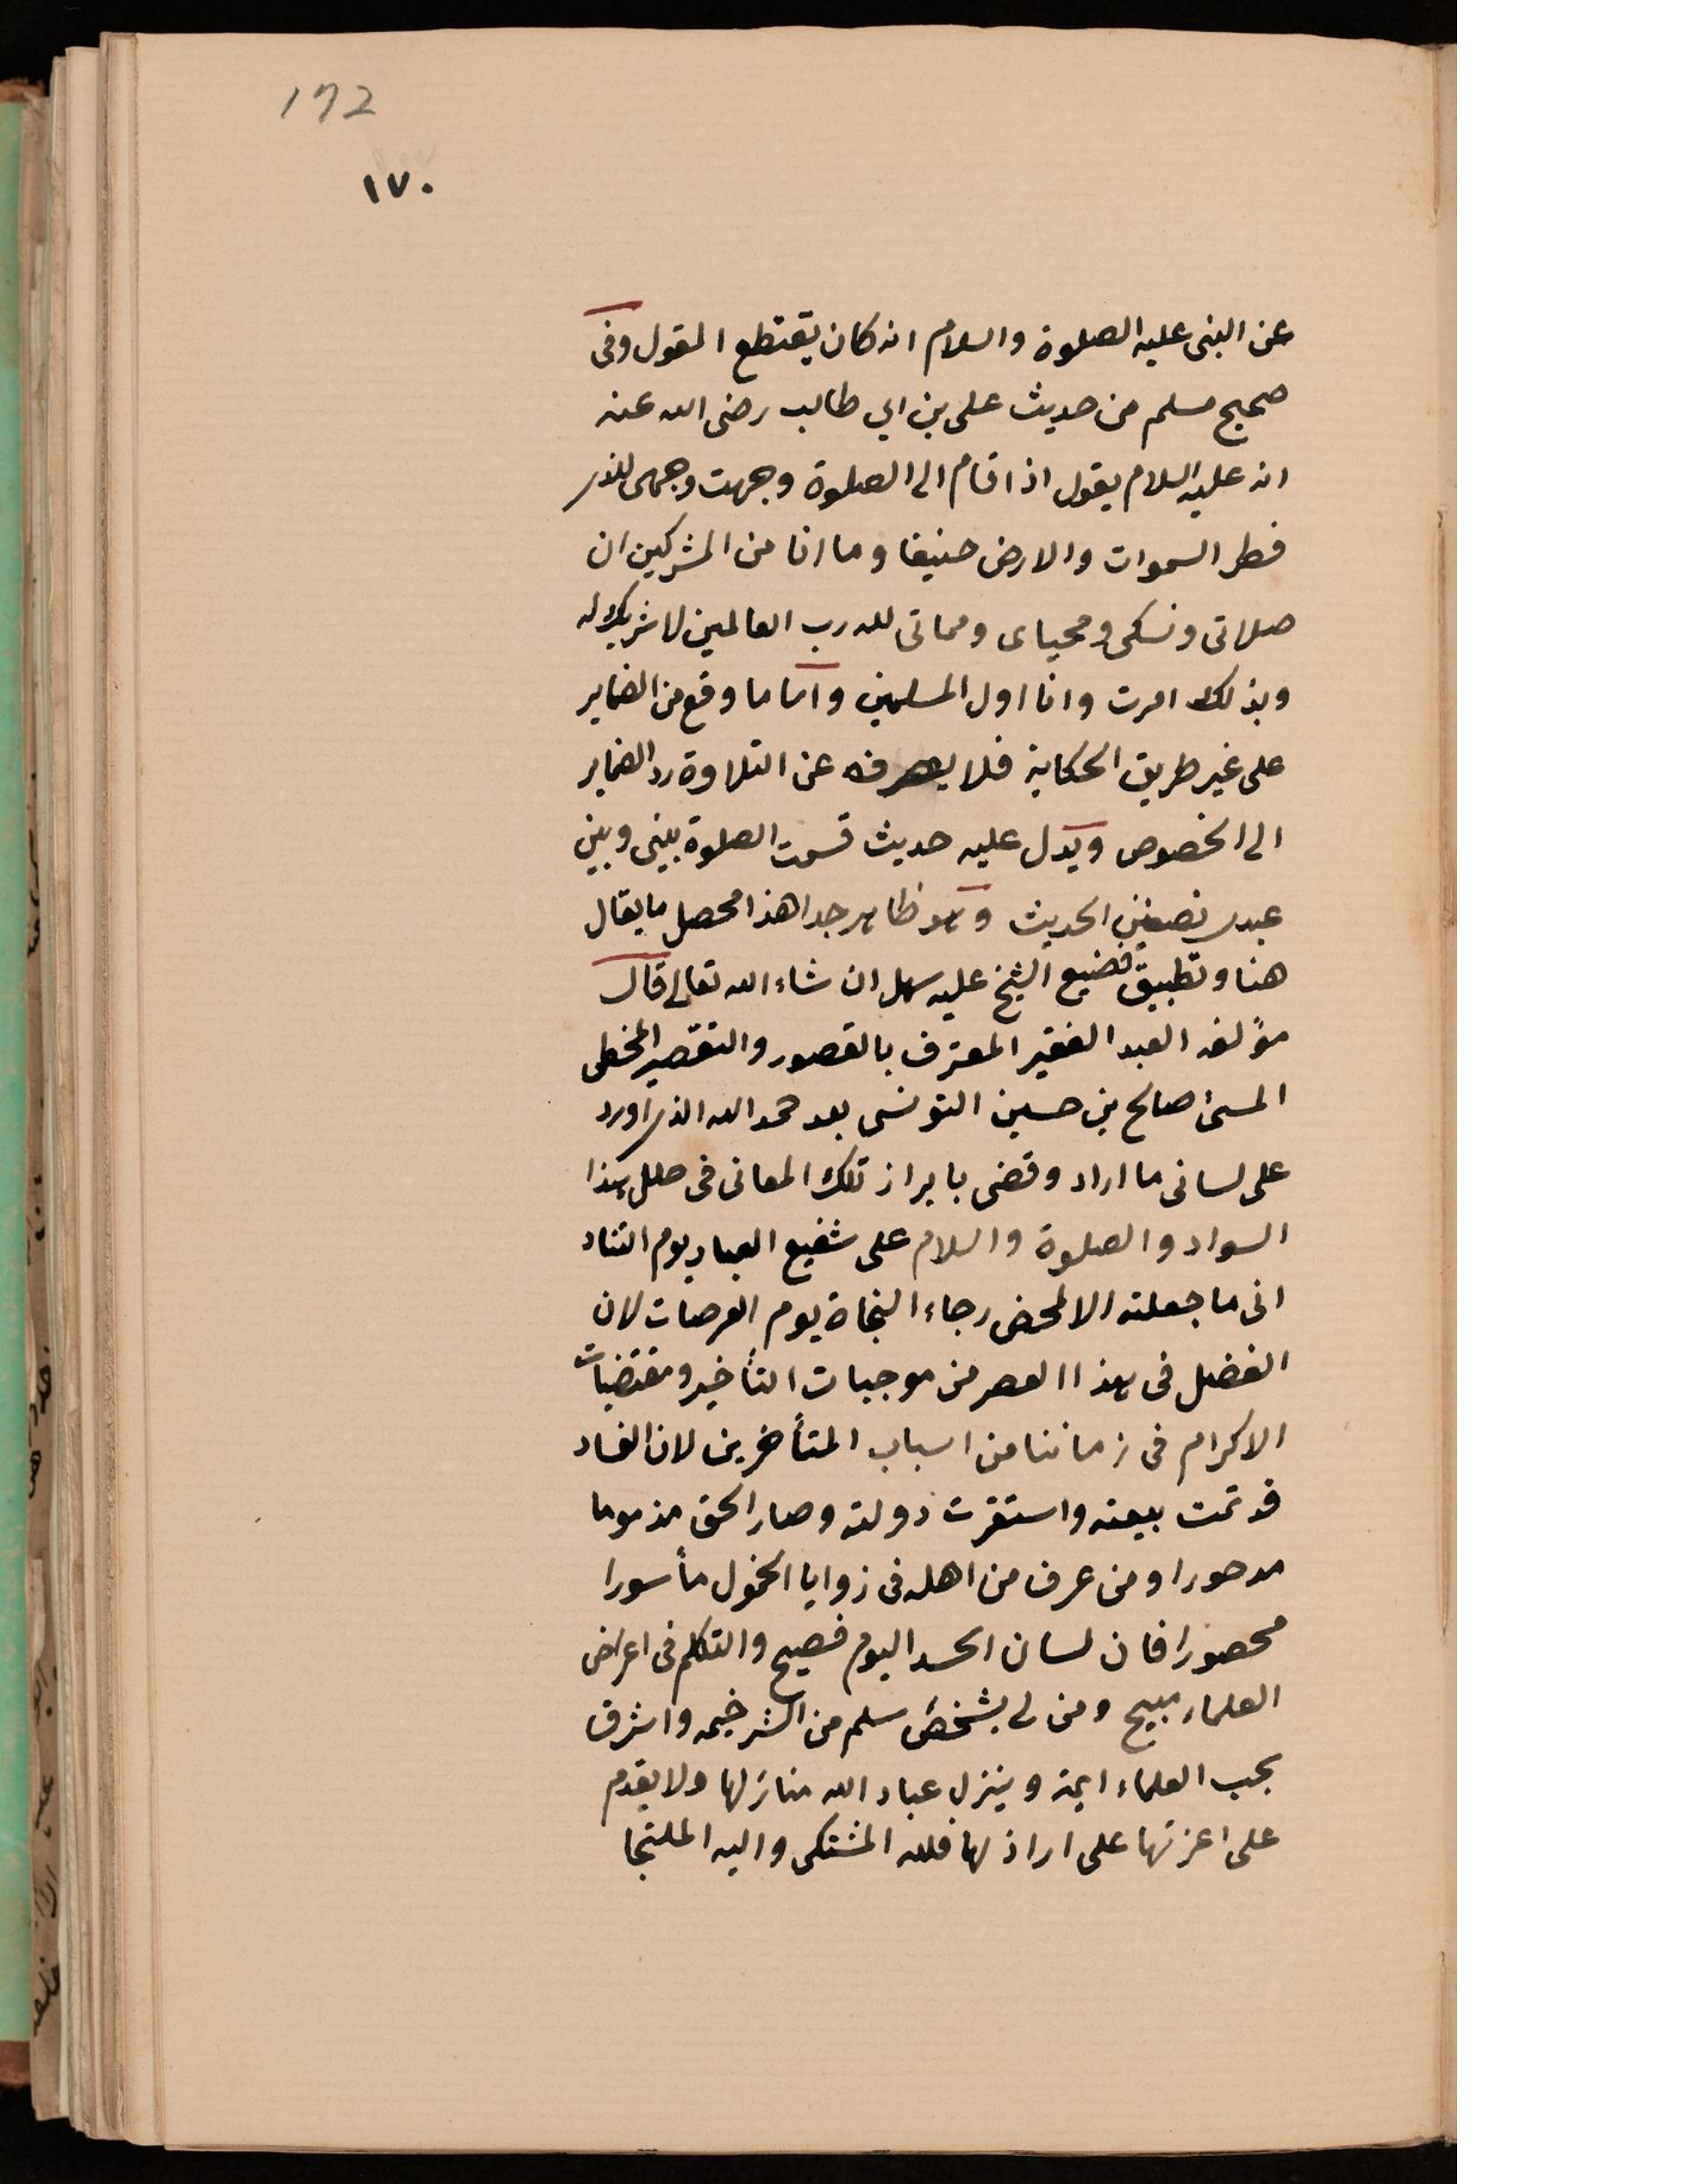 172
١٧٠
عن النبى عليه الصلوة والسلام انه كان يقتطع المقول وفى
صحيح مسلم من حديث على بن ابي طالب رضى الله عنه
انه عليه السلام يقول اذا قام الى الصلوة وجهت وجهى للذى
فطر السموات والارض حنيفا وما انا من المشركين ان
صلاتى ونسكى ومحياى ومماتى لله رب العالمين لا شريك له
وبذلك امرت وانا اول المسلمين واما ما وقع من الضماير
على غير طريق الحكاية فلا يصرفه عن التلاوة رد الضماير
الى الخصوص ويدل عليه حديث قسمت الصلوة بينى وبين
عبدى نصفين الحديث وهو ظاهر جدا هذا محصل ما يقال
هنا وتطبيق صنيع الشيخ عليه سهل ان شاء الله تعالى قال
مؤلفه العبد الفقير المعترف بالقصور والتقصير المخطى
المسمى صالح بن حسين التونسى بعد حمد الله الذى اورد
على لسانى ما اراد وقضى بابراز تلك المعانى فى حلل هذا
السواد والصلوة والسلام على شفيع العباد يوم التناد
انى ما جعلته الا لمحض رجاء النجاة يوم العرصات لان
الفضل فى هذا العصر من موجبات التأخير ومقتضيات
الاكرام فى زماننا من اسباب المتأخرين لان الفساد
قد تمت بيعته واستقرت دولته وصار الحق مذموما
مدحورا ومن عرف من اهله فى زوايا الخمول مأسورا
محصورا فان لسان الحسد اليوم فصيح والتكلم فى اعراض
العلماء مبيح ومن لى بشخص سلم من الشر خيمه واشرق
بحب العلماء ايمه وينزل عباد الله منازلها ولا يقدم
على اعزتها على اراذلها فلله المشتكى واليه الملتجا